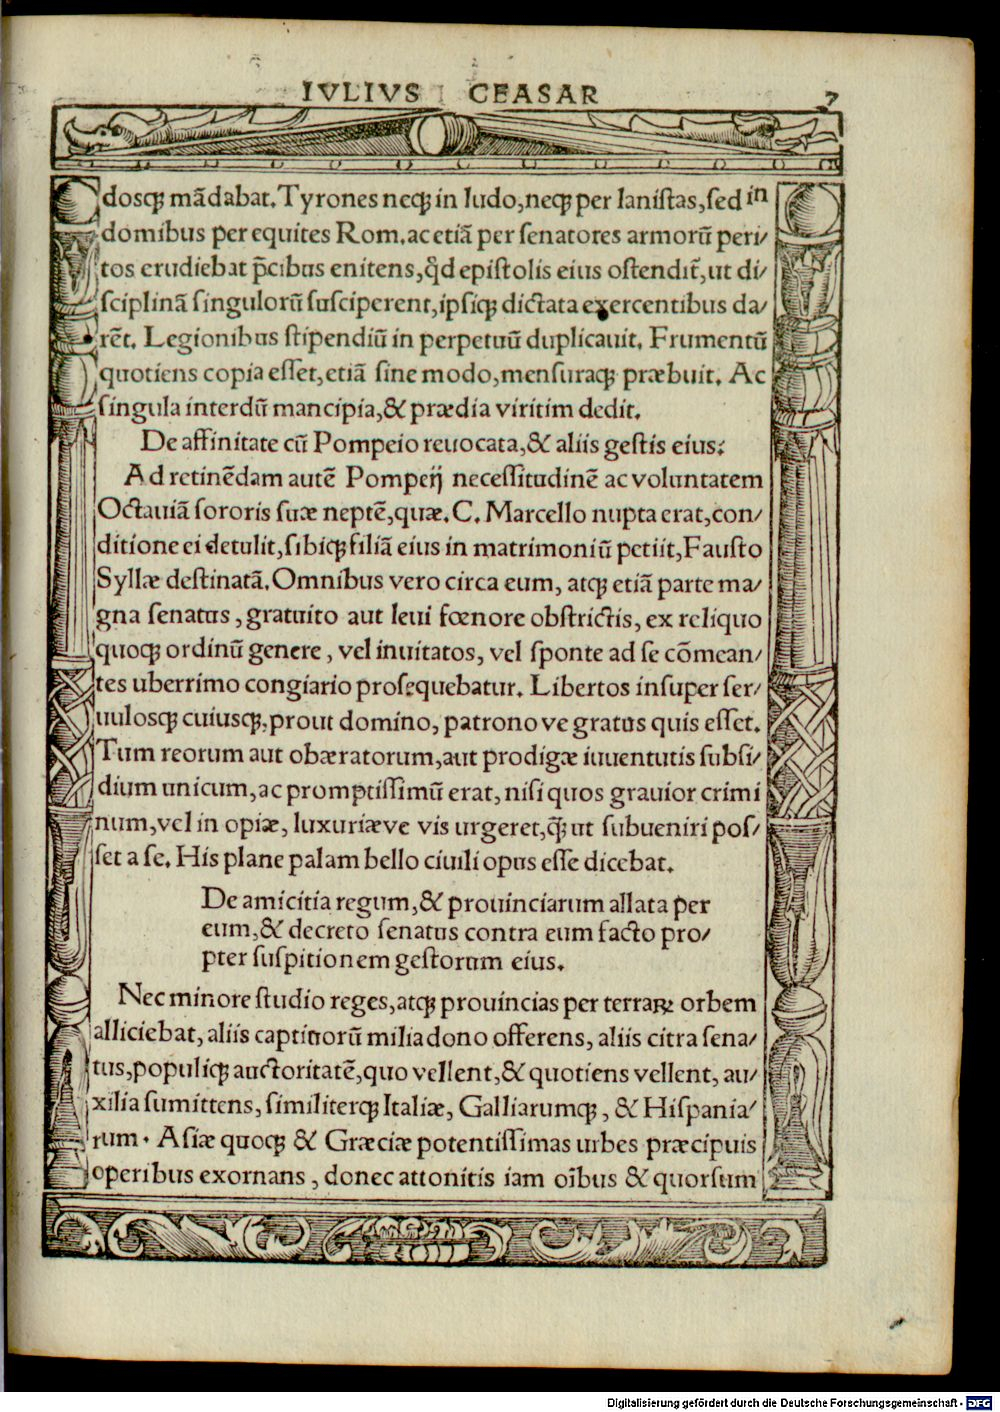 IVLIVS CEASAR 7
dosqꝫ mādabat. Tyrones neqꝫ in ludo, neqꝫ per lanistas, sed in
domibus per equites Rom. ac etiā per senatores armorū peri/
tos erudiebat p̄cibus enitens, qd̄ epistolis eius ostendit̄, ut di/
sciplinā singulorū susciperent, ipsiqꝫ dictata exercentibus da/
rēt. Legionibus stipendiū in perpetuū duplicauit. Frumentū
quotiens copia esset, etiā sine modo, mensuraqꝫ præbuit. Ac
singula interdū mancipia, & prædia viritim dedit.
De affinitate cū Pompeio reuocata, & aliis gestis eius:
Ad retinēdam autē Pompeij necessitudinē ac voluntatem
Octauiā sororis suæ neptē, quæ. C. Marcello nupta erat, con/
ditione ei detulit, sibiqꝫ filiā eius in matrimoniū petiit, Fausto
Syllæ destinatā. Omnibus vero circa eum, atqꝫ etiā parte ma/
gna senatus, gratuito aut leui fœnore obstrictis, ex reliquo
quoqꝫ ordinū genere, vel inuitatos, vel sponte ad se cōmean/
tes uberrimo congiario prosequebatur. Libertos insuper ser/
uulosqꝫ cuiusqꝫ, prout domino, patrono ve gratus quis esset.
Tum reorum aut obæratorum, aut prodigæ iuuentutis subsi/
dium unicum, ac promptissimū erat, nisi quos grauior crimi
num, vel in opiæ, luxuriæve vis urgeret, q̄ꝫ ut subueniri pos/
set a se. His plane palam bello ciuili opus esse dicebat.
De amicitia regum, & prouinciarum allata per
eum, & decreto senatus contra eum facto pro/
pter suspitionem gestorum eius.
Nec minore studio reges, atqꝫ prouincias per terraꝝ orbem
alliciebat, aliis captiuorū milia dono offerens, aliis citra sena/
tus, populiqꝫ auctoritatē, quo vellent, & quotiens vellent, au/
xilia sumittens, similiterqꝫ Italiæ, Galliarumqꝫ, & Hispania/
rum. Asiæ quoqꝫ & Græciæ potentissimas urbes præcipuis
operibus exornans, donec attonitis iam oībus & quorsum
Digitalisierung gefördert durch die Deutsche Forschungsgemeinschaft - DFG